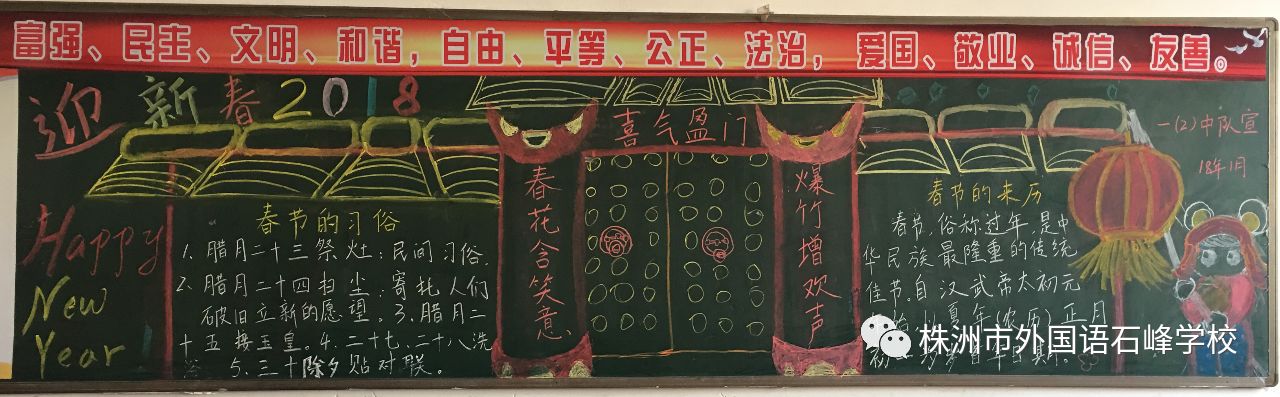 富强、民主、文明、和谐，自由、平等、公正、法治，爱国、敬业、诚信、友善。
迎新春2018
Happy
New
Year
春节的习俗
1. 腊月二十三祭灶：民间习俗.
2. 腊月二十四扫尘：寄托人们
破旧立新的愿望。3. 腊月二
十五接玉皇。4. 二十七、二十八洗
浴 5. 三十除夕贴对联。
喜气盈门
春花含笑意
爆竹增欢声
一(2)中队宣
18年1月
春节的来历
春节，俗称过年，是中
华民族最隆重的传统
佳节。自汉武帝太初元
夏年(农历)正月
初一
株洲市外国语石峰学校